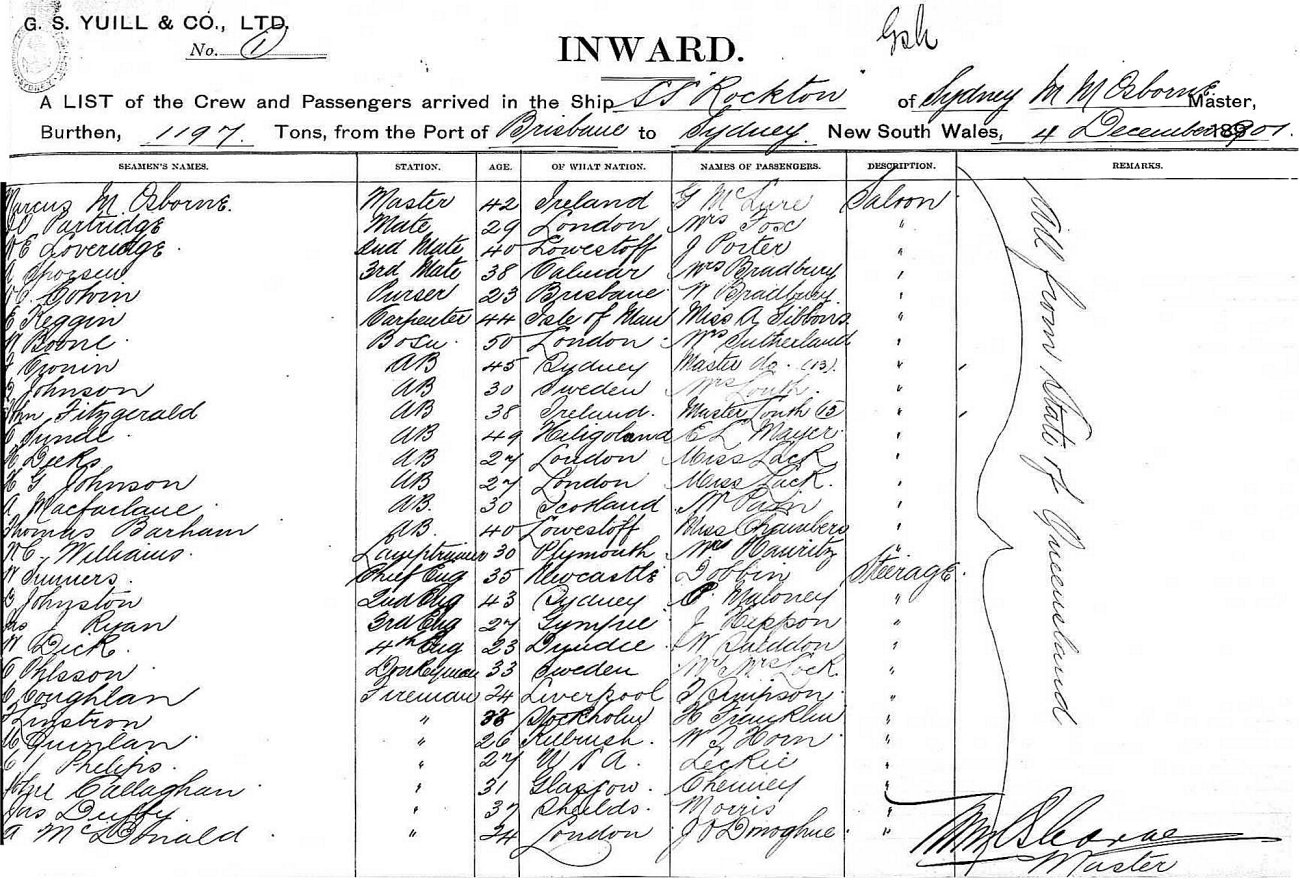 G. S. YUILL & CO., LTD.
No. 1
INWARD.
A LIST of the Crew and Passengers arrived in the Ship SS "Rockton" of Sydney M M Osborne Master,
Burthen, 1197 Tons, from the Port of Brisbane to Sydney New South Wales, 4 December 1901.
SEAMEN'S NAMES. STATION. AGE. OF WHAT NATION. NAMES OF PASSENGERS. DESCRIPTION. REMARKS.
Marcus M. Osborne. Master 42 Ireland G McLure Saloon
Partridge Mate 29 London Mrs Fox "
Loveridge 2nd Mate 40 Lowestoff J Porter "
3rd Mate 38 Calmar Mrs Bradbury "
Colvin Purser 23 Brisbane W Bradbury "
Keggin Carpenter 44 Isle of Man Miss A Gibbons "
Boone Bosn 50 London Mrs Sutherland "
Cronin AB 45 Sydney Master do. (13) "
Johnson AB 30 Sweden Mrs "
John Fitzgerald AB 38 Ireland. Master (13) "
AB 49 Heligoland E L Mayer "
Deeks AB 27 London Miss Lack "
G Johnson AB 27 London Miss Lack. "
A Macfarlane AB. 30 Scotland "
Thomas Barham AB. 40 Lowestoff Miss Chambers "
Williams. Lamptrimmer 30 Plymouth "
Chief Eng 35 Newcastle Dobbin Steerage.
Johnston 2nd Eng 43 Sydney P Maloney "
Ryan 3rd Eng 27 Gympie J "
W Dick. 4th Eng 23 Dundee W "
Ohlsson Donkeyman 33 Sweden Mr & Mrs Lock "
Coughlan Fireman 24 Liverpool Simpson "
" Stockholm H Franklin "
Quinlan " 26 Kilrush. W J Horn "
Philips. " 27 U S A. Leckie "
Callaghan " 31 Glasgow. "
Jas Duffy " 37 Shields. Morris "
A McDonald " 34 London J O'Donoghue "
All from State of Queensland
MM Osborne
Master